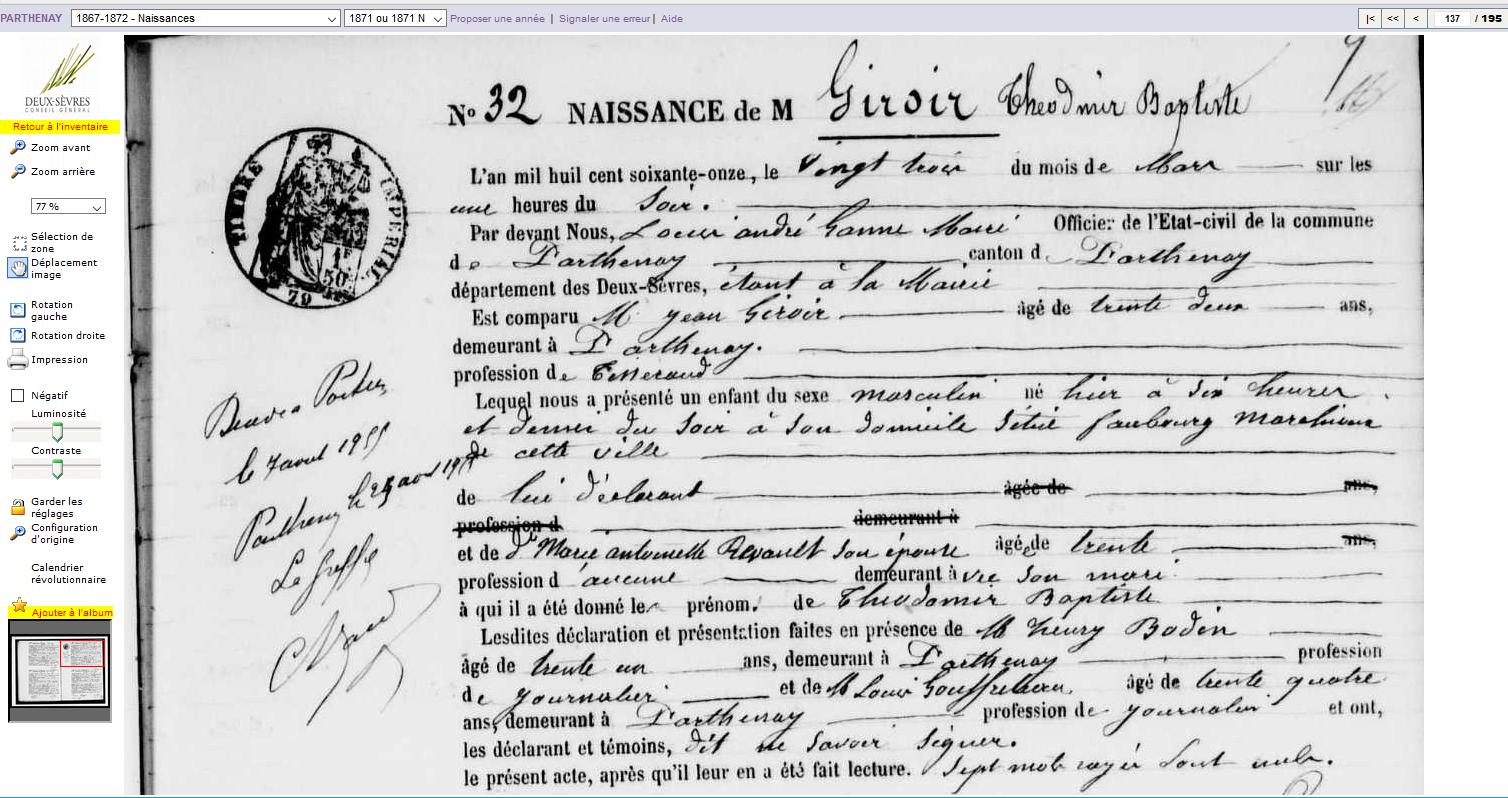 PARTHENAY 1867-1872 - Naissances 1871 ou 1871 N Proposer une année | Signaler une erreur | Aide |< << < 137 / 195
DEUX-SÈVRES
CONSEIL GÉNÉRAL
Retour à l'inventaire
Zoom avant
Zoom arrière
77 %
Sélection de
zone
Déplacement
image
Rotation
gauche
Rotation droite
Impression
Négatif
Luminosité
Contraste
Garder les
réglages
Configuration
d'origine
Calendrier
révolutionnaire
Ajouter à l'album
No 32 NAISSANCE de M Giroir Théodmir Baptiste
TIMBRE IMPERIAL
1F
50
79
L'an mil huit cent soixante-onze, le Vingt trois du mois de Mars sur les
une heures du Soir.
Par devant Nous, Louis andré Ganne Maire Officier de l'Etat-civil de la commune
de Parthenay canton d Parthenay
département des Deux-Sèvres, étant à la Mairie
Est comparu M Jean Giroir âgé de trente deux ans,
demeurant à Parthenay.
profession de Tisserand
Lequel nous a présenté un enfant du sexe masculin né hier à six heures
et demie du soir à son domicile situé faubourg Marchioux
de cette ville
de lui déclarant âgée de ans,
profession d demeurant à
et de de Marie antoinette Revault son épouse âgée de trente ans,
profession d aucune demeurant avec son mari
à qui il a été donné les prénom. de Théodomir Baptiste
Lesdites déclaration et présentation faites en présence de M henry Bodin
âgé de trente un ans, demeurant à Parthenay profession
de journalier et de M Louis âgé de trente quatre
ans, demeurant à Parthenay profession de journalier et ont,
les déclarant et témoins, dit ne savoir signer.
le présent acte, après qu'il leur en a été fait lecture. Sept mots rayés sont nuls.
le 7 aout 1955
Parthenay le 25 aout
Le Greffe